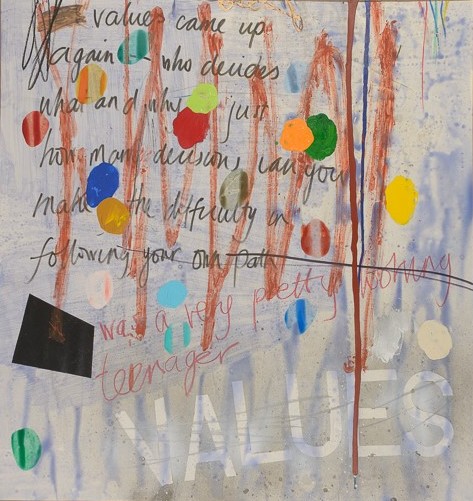 values came up
again who decides
what and why just
how many decisions can you
make the difficulty in
following your own path
was a very pretty
teenager
VALUES